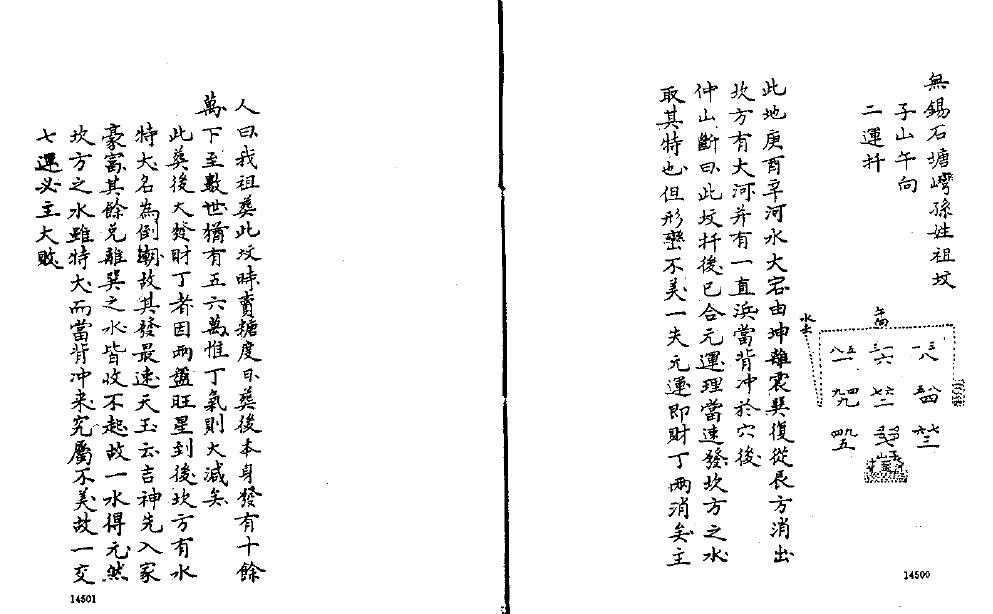 無錫石塘嶴孫姓祖坟
子山午向
二運扦
午向
水去
此地庚酉辛河水大宕由坤離震巽復從艮方消出
坎方有大河并有一直浜當背冲於穴後
仲山斷曰此坟扦後已合元運理當速發坎方之水
取其特也但形巒不美一失元運即財丁兩消矣主
14500
人曰我祖葬此坟時賣糖度日葬後本身發有十餘
萬下至數世猶有五六萬惟丁氣則大減矣
此葬後大發財丁者因兩盤旺星到後坎方有水
特大名為倒潮故其發最速天玉云吉神先入家
豪富其餘兑離巽之水皆收不起故一水得元然
坎方之水雖特大而當背冲來究屬不美故一交
七運必主大敗
14501